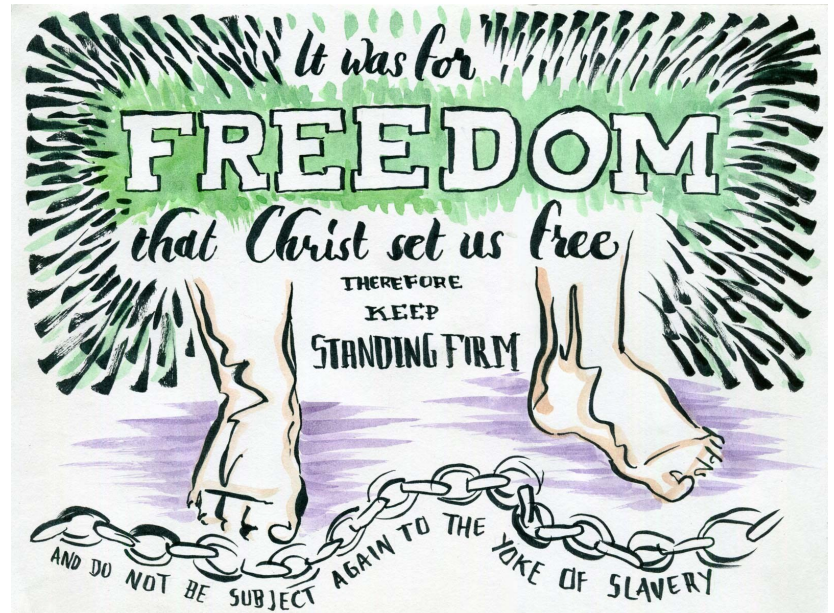 It was for
FREEDOM
that Christ set us free
THEREFORE
KEEP
STANDING FIRM
AND DO NOT BE SUBJECT AGAIN TO THE YOKE OF SLAVERY